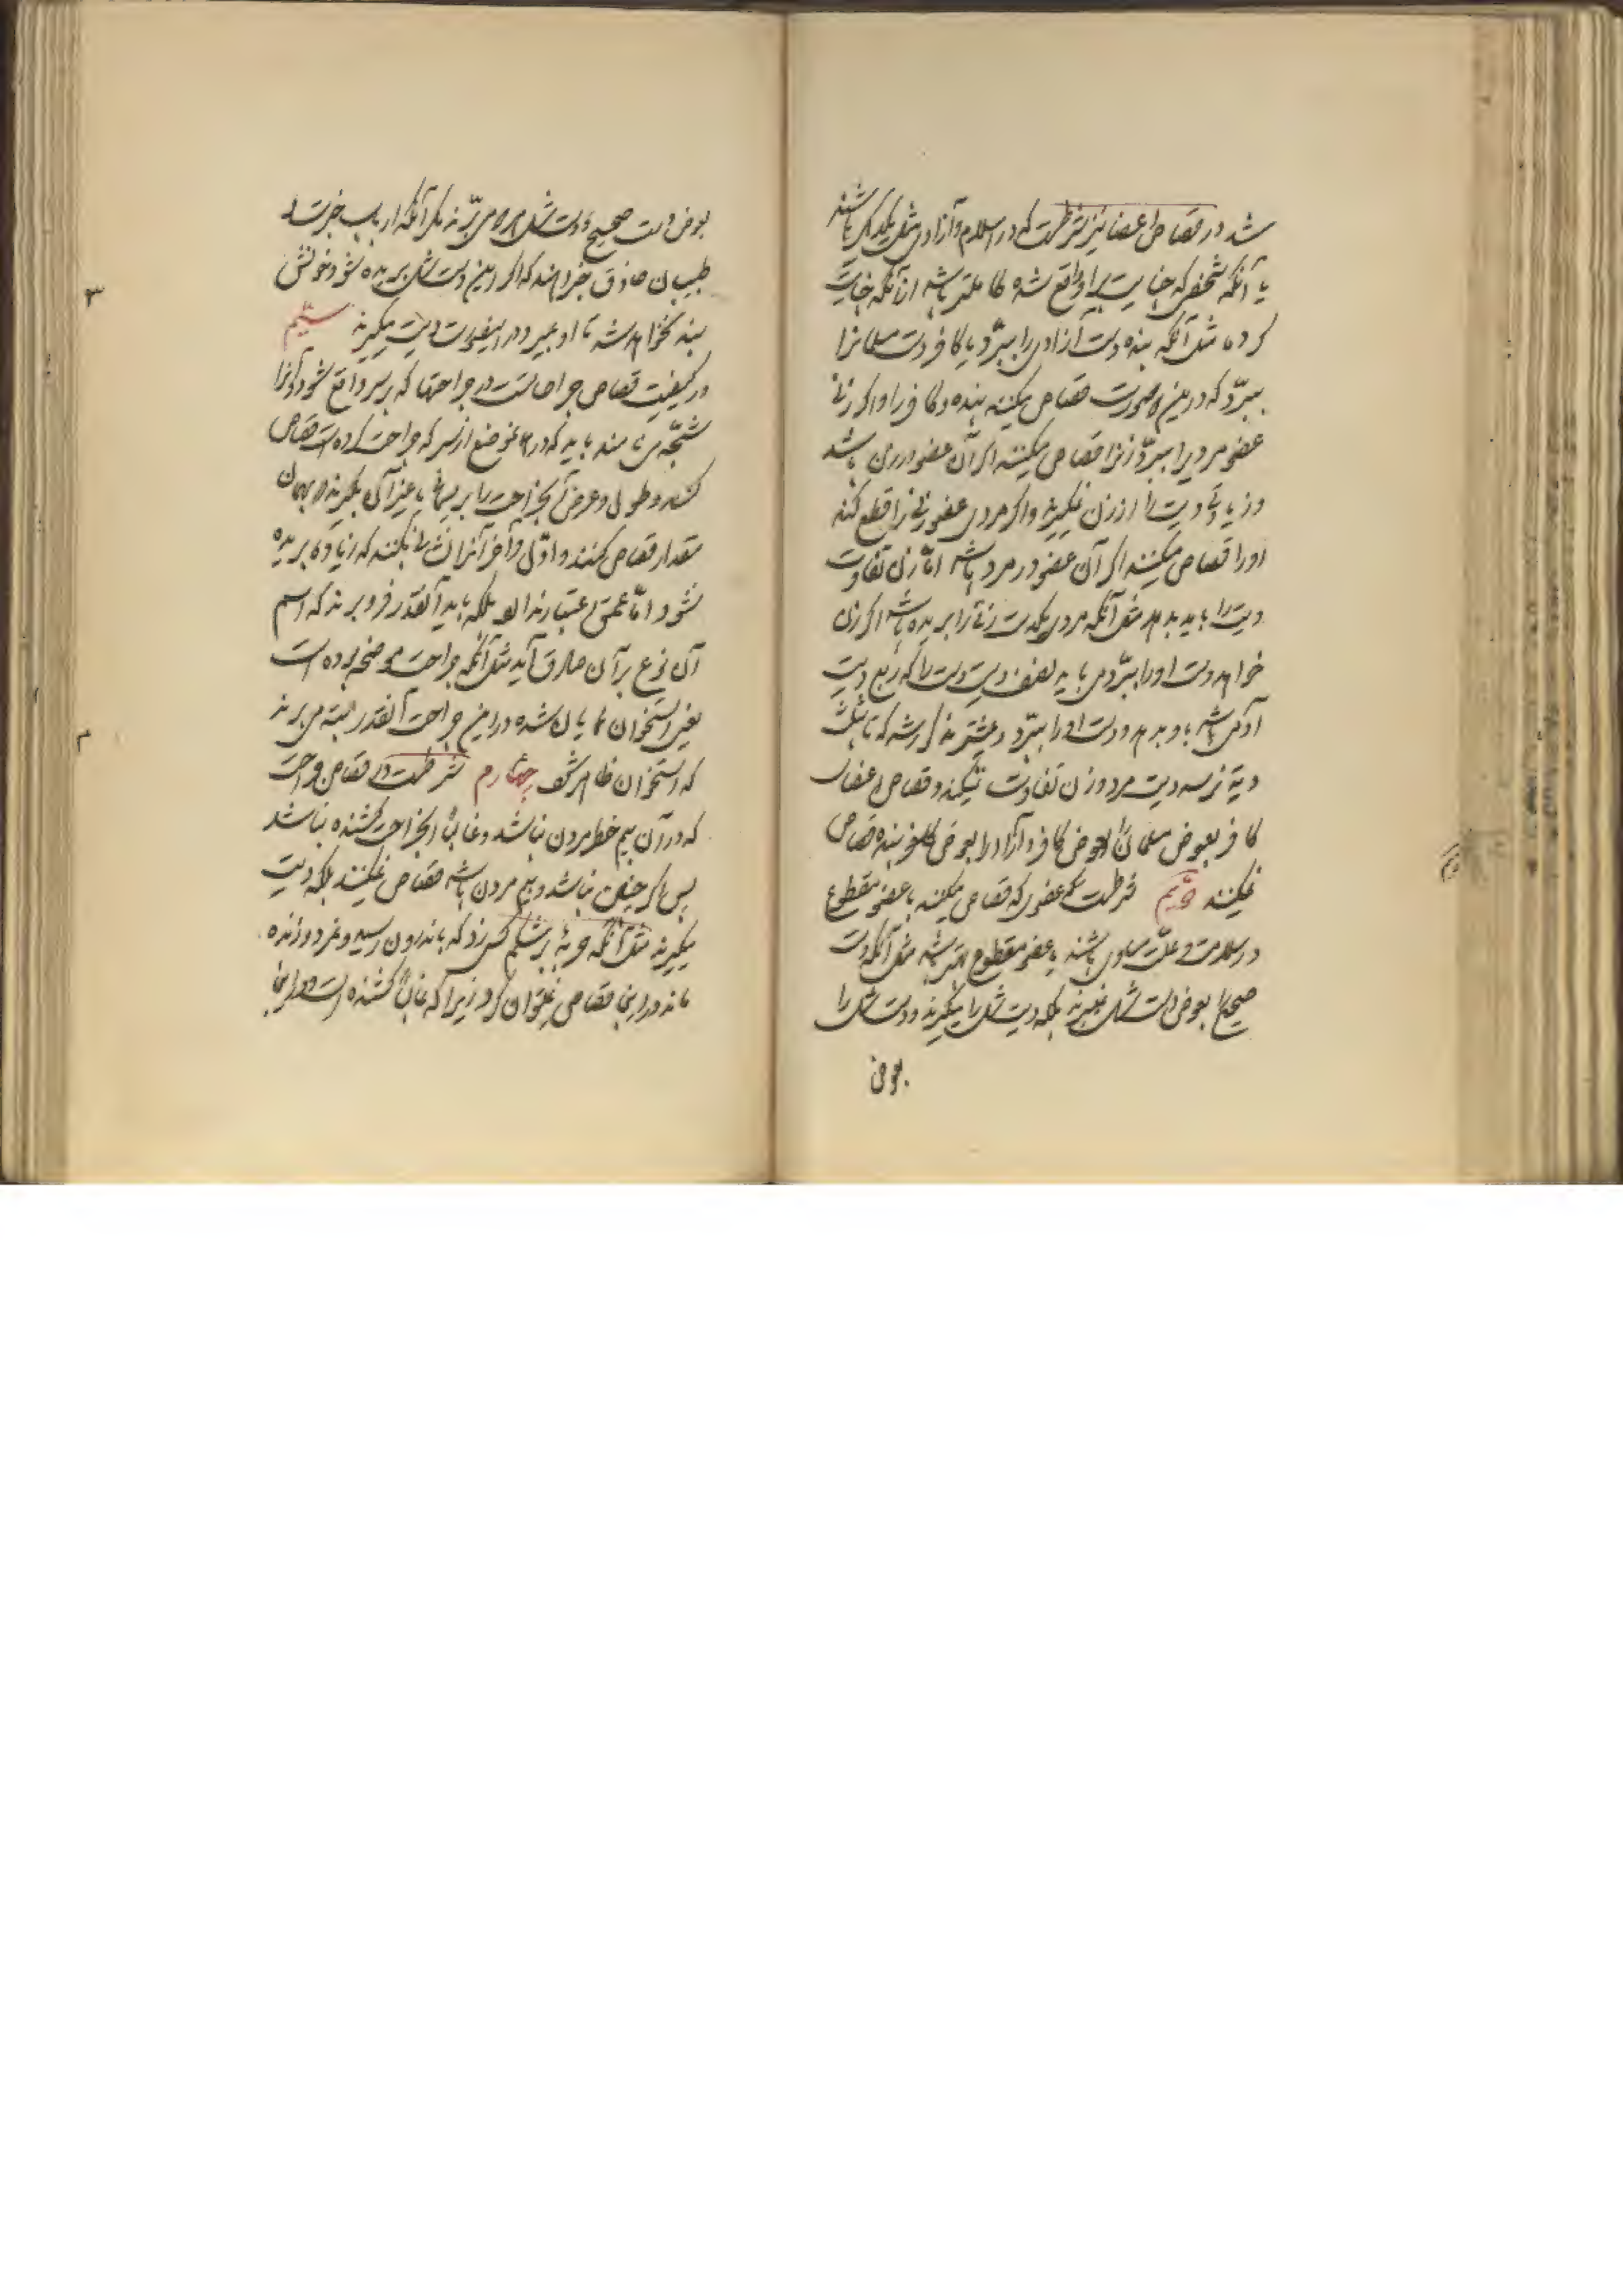 شد در قصاص اعضا نیز شرطست که در اسلام و آزادی مثل یکدیگر باشند
یا آنکه شخصی که جنایت بر او واقع شده کاملتر باشد از آنکه جنایت
کرده مثل آنکه بنده دست آزادی را ببرّد یا کافر دست مسلمانرا
ببرّد که درین صورت قصاص میکنند بنده و کافر را و اگر زنی
عضو مردیرا ببرّد زنرا قصاص میکنند اگر آن عضو در زن باشد
و زیادتی دیت را از زن نمیگیرند و اگر مردی عضو زنی را قطع کند
او را قصاص میکنند اگر آن عضو در مرد باشد امّا زن تفاوت
دیت را باید بدهد مثل آنکه مردی یکدست زنی را بریده باشد اگر زن
خواهد دست او را ببرّد می باید نصف دیت دست را که ربع دیت
آدمی باشد باو بدهد و دست او را ببرّد و پیشتر مذکور شد که تا بثلث
دیة نرسد دیت مرد و زن تفاوت نمیکند و قصاص اعضای
کافر بعوض مسلمان بعوض کافر و آزاد را بعوض بنده قصاص
نمیکنند دویم شرطست که عضوی که قصاص میکنند با عضو مقطوع
در سلامت و علّت مساوی باشند یا عضو مقطوع بهتر باشد مثل آنکه دست
صحیح را بعوض دست شل نمیبرند بلکه دیت شل را میگیرند و دست شل را
بعوض
بعوض دست صحیح و دست شل می برّند مگر آنکه ارباب خبرت و
طبیبان حاذق خبر دهند که اگر این دست شل بریده شود خونش
بند نخواهد شد تا او بمیرد در اینصورت دیت میگیرند سیّیم
در کیفیت قصاص جراحاتست در جراحتها که بر سر واقع شود و آنرا
شجّه می نامند باید که در همان موضع از سر که جراحت کرده است قصاص
کنند و طول و عرض آن جراحت را بریسمان یا غیر آن بگیرند و بهمان
مقدار قصاص کنند و اوّل و آخر آنرا نشان کنند که زیاده بریده
نشود امّا عمق اعتبار ندارد بلکه باید آنقدر فرو برند که اسم
آن نوع بر آن صادق آید مثل آنکه جراحت موضحه بوده است
یعنی استخوان نمایان شده در این جراحت آنقدر البته می برند
که استخوان ظاهر شود چهارم شرطست در قصاص جراحت
که در آن بیم خطر مردن نباشد و غالباً آن جراحت کشنده نباشد
پس اگر چنین نباشد و بیم مردن باشد قصاص نمیکنند بلکه دیت
میگیرند مثل آنکه حربهٔ بر شکم کسی زد که باندرون رسید و نمرد و زنده
ماند در این قصاص نمیتوان کرد زیرا که غالباً کشنده است و در این